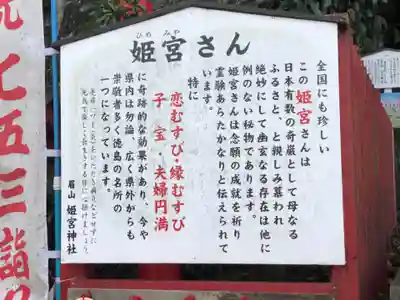 ひめ みや
姫宮さん
全国にも珍しい
この姫宮さんは
日本有数の奇巌として母なる
ふるさと、と親しみ慕われ
絶妙にして幽玄なる存在は他に
例のない秘物であります。
姫宮さんは念願の成就を祈り
霊験あらたかなりと伝えられて
います。
特に
恋むすび・縁むすび
子宝・夫婦円満
に奇跡的な効果があり、今や
県内は勿論、広く県外からも
崇敬者多く徳島の名所の
一つになっています。
眉山 姫宮神社
七五三詣